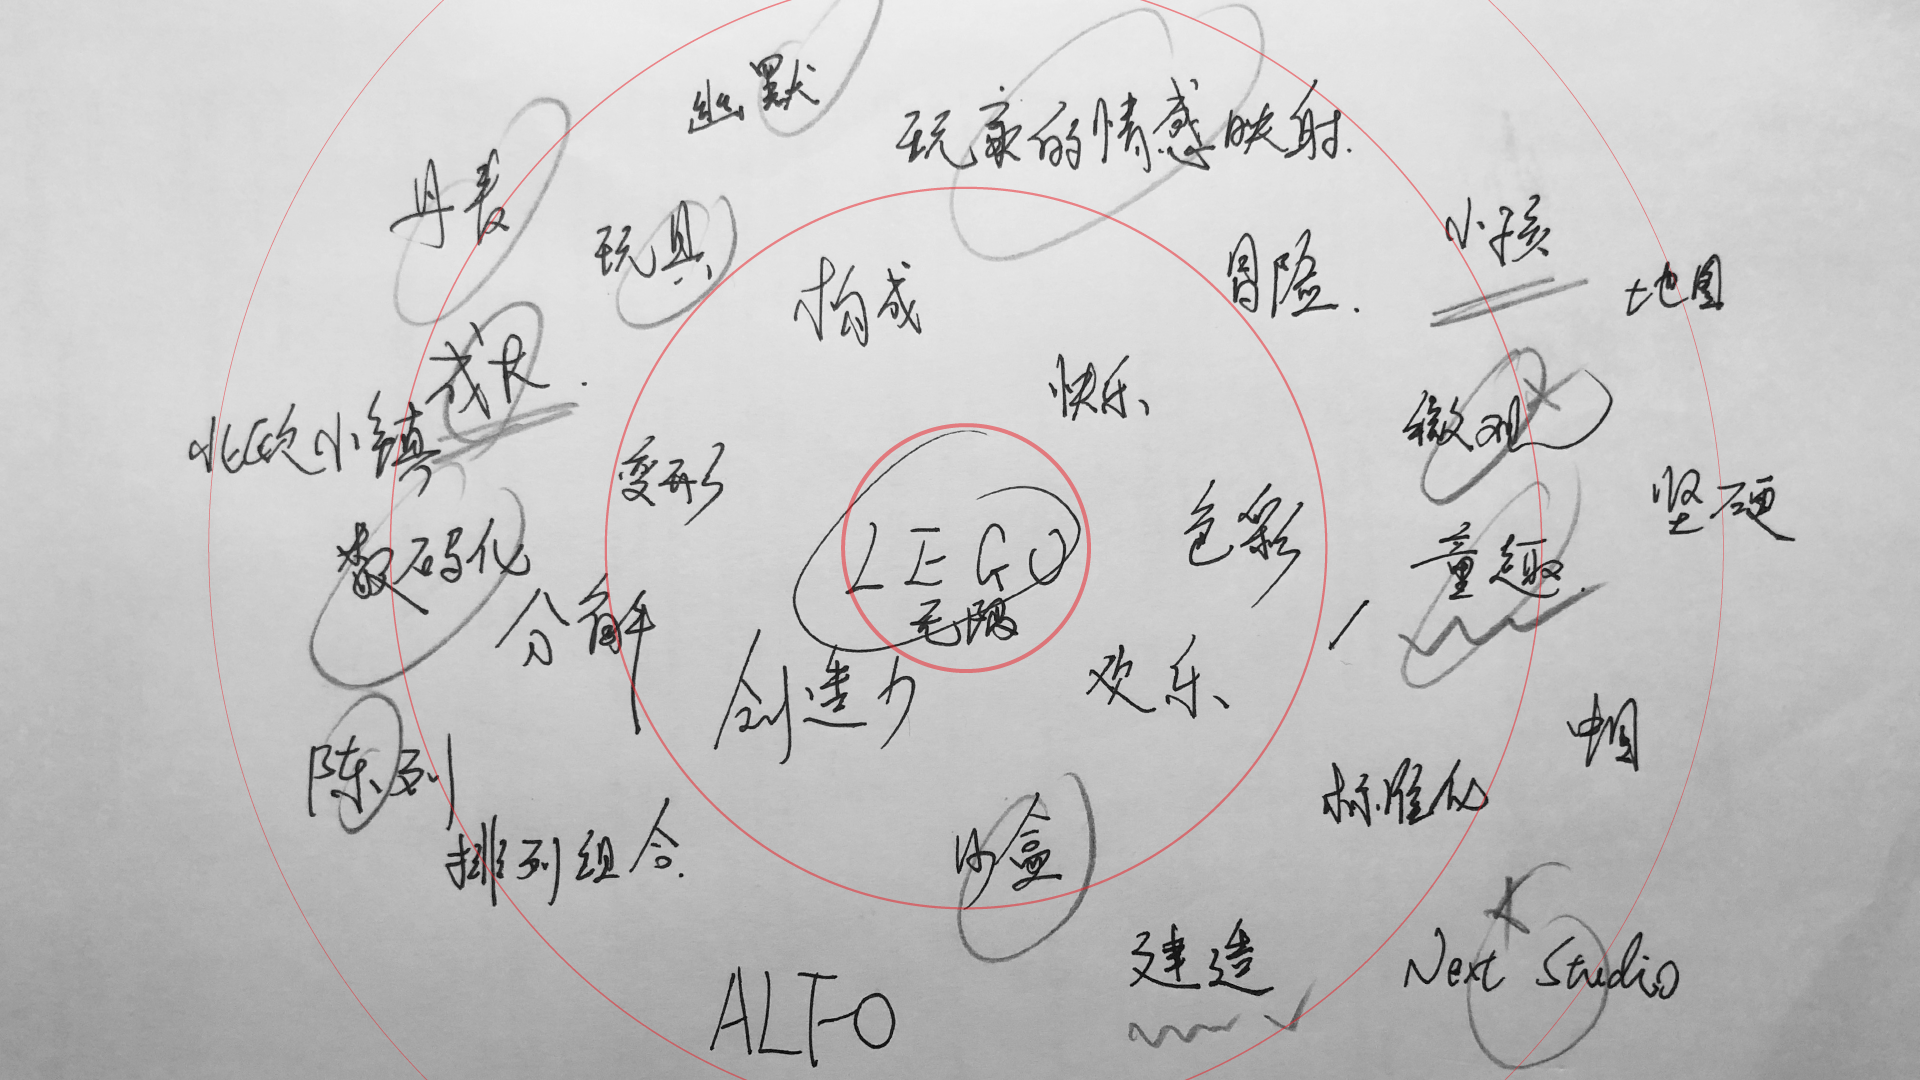 幽默
玩家的情感映射.
丹麦
玩具
小孩
冒险.
地图
构成
成人.
快乐
微观
北欧小镇
变形
坚硬
LEGO
色彩
数码化
童趣.
分解
无限
创造力
欢乐
中国
陈列
标准化
排列组合.
沙盒
建造
Next Studio
ALTO